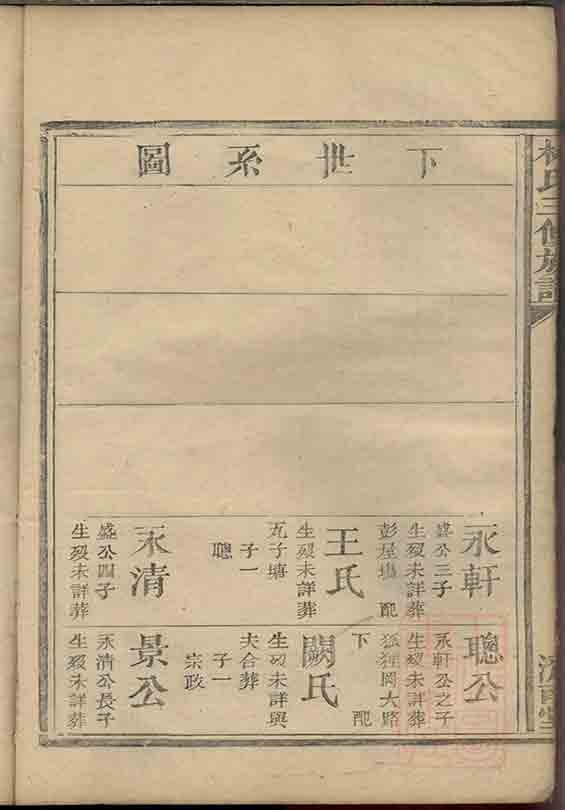 下世系圖
永軒
盛公三子
生歿未詳葬
彭屋塲 配
王氏
生歿未詳葬
瓦子塘
子一
聰
永清
盛公四子
生歿未詳葬
聰公
永軒公之子
生歿未詳葬
狐狸岡大路
下 配
闕氏
生歿未詳與
夫合葬
子一
宗政
景公
永清公長子
生歿未詳葬
氏三修族譜
堂